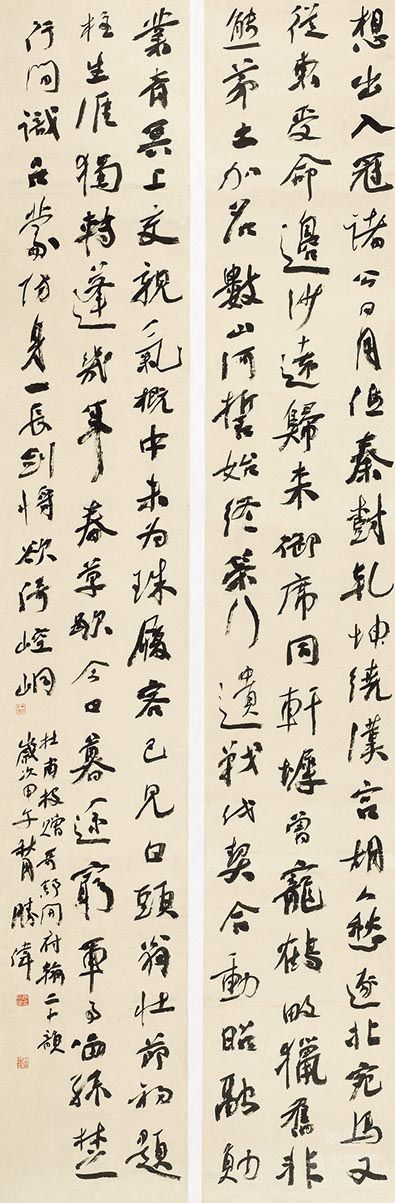 想出入冠諸公日月低秦樹乾坤繞漢宮胡人愁逐北宛馬又
從東受命邊沙遠歸來御席同軒墀曾寵鶴畋獵舊非
熊茅土加名數山河誓始終策行遺戰伐契合動昭融勛
業青冥上交親氣概中未為珠履客已見白頭翁壯節初題
柱生涯獨轉蓬幾年春草歇今日暮途窮軍事留孫楚
行間識呂蒙防身一長劍將欲倚崆峒
杜甫投贈哥舒開府翰二十韻
歲次甲午秋月勝偉